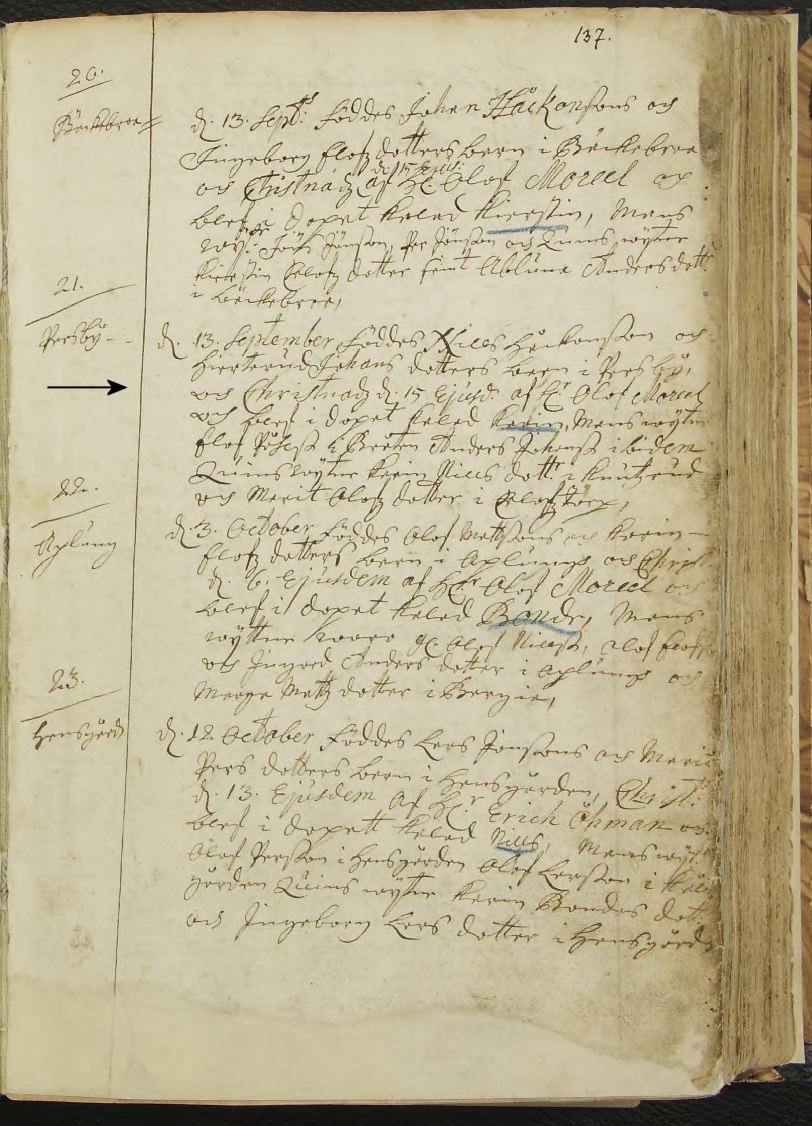 137.
20.
Bäckebroo
d. 13. Sept: föddes Johan Håkansons och
Ingeborg Elofz dotters barn i Bäckebroo
d. 15 Ejusd:
och Christnadz af Hr. Olof Morell och
blef i dopet kalad Kierstin, Mans
wyt: Jöns Jönson, Per Jönson och Quins wytne
Kierstin Olofz dotter samt Abluna Anders dott:
i Bäckebroo,
21.
Persby
d. 13. September föddes Nills Håkanson och
Johans dotters barn i Persby,
och Christnadz d. 15 Ejusd: af Hr Olof Morell
och blef i dopet kalad Karin, Mans wytne
Elof i Bråten Anders Johanss ibidem
Quins wytne Karin Nills dott: i Knutzrud
och Marit Olofz dotter i Olofztorp,
22.
Aplung
d. 3. October föddes Olof Mattsons och Karin
Elofz dotters barn i Aplung och Christ:
d. 6. Ejusdem af Hr Olof Morell och
blef i dopet kalad Bonde, Mans
wyttne Olof Nillss, Olof
och Ingred Anders dotter i Aplung och
Matz dotter i Bergie,
23.
Hensgård
d. 12 October föddes Lars Jonsons och Marit
Pers dotters barn i Hensgården, Christ:
d. 13. Ejusdem af Hr Erich Öhman och
blef i dopett kalad Nills, Mans wyt:
Olof Person i Hensgården Olof Larson i
gården Quins wytne Karin Bondes dott:
och Ingeborg Lars dotter i Hensgård